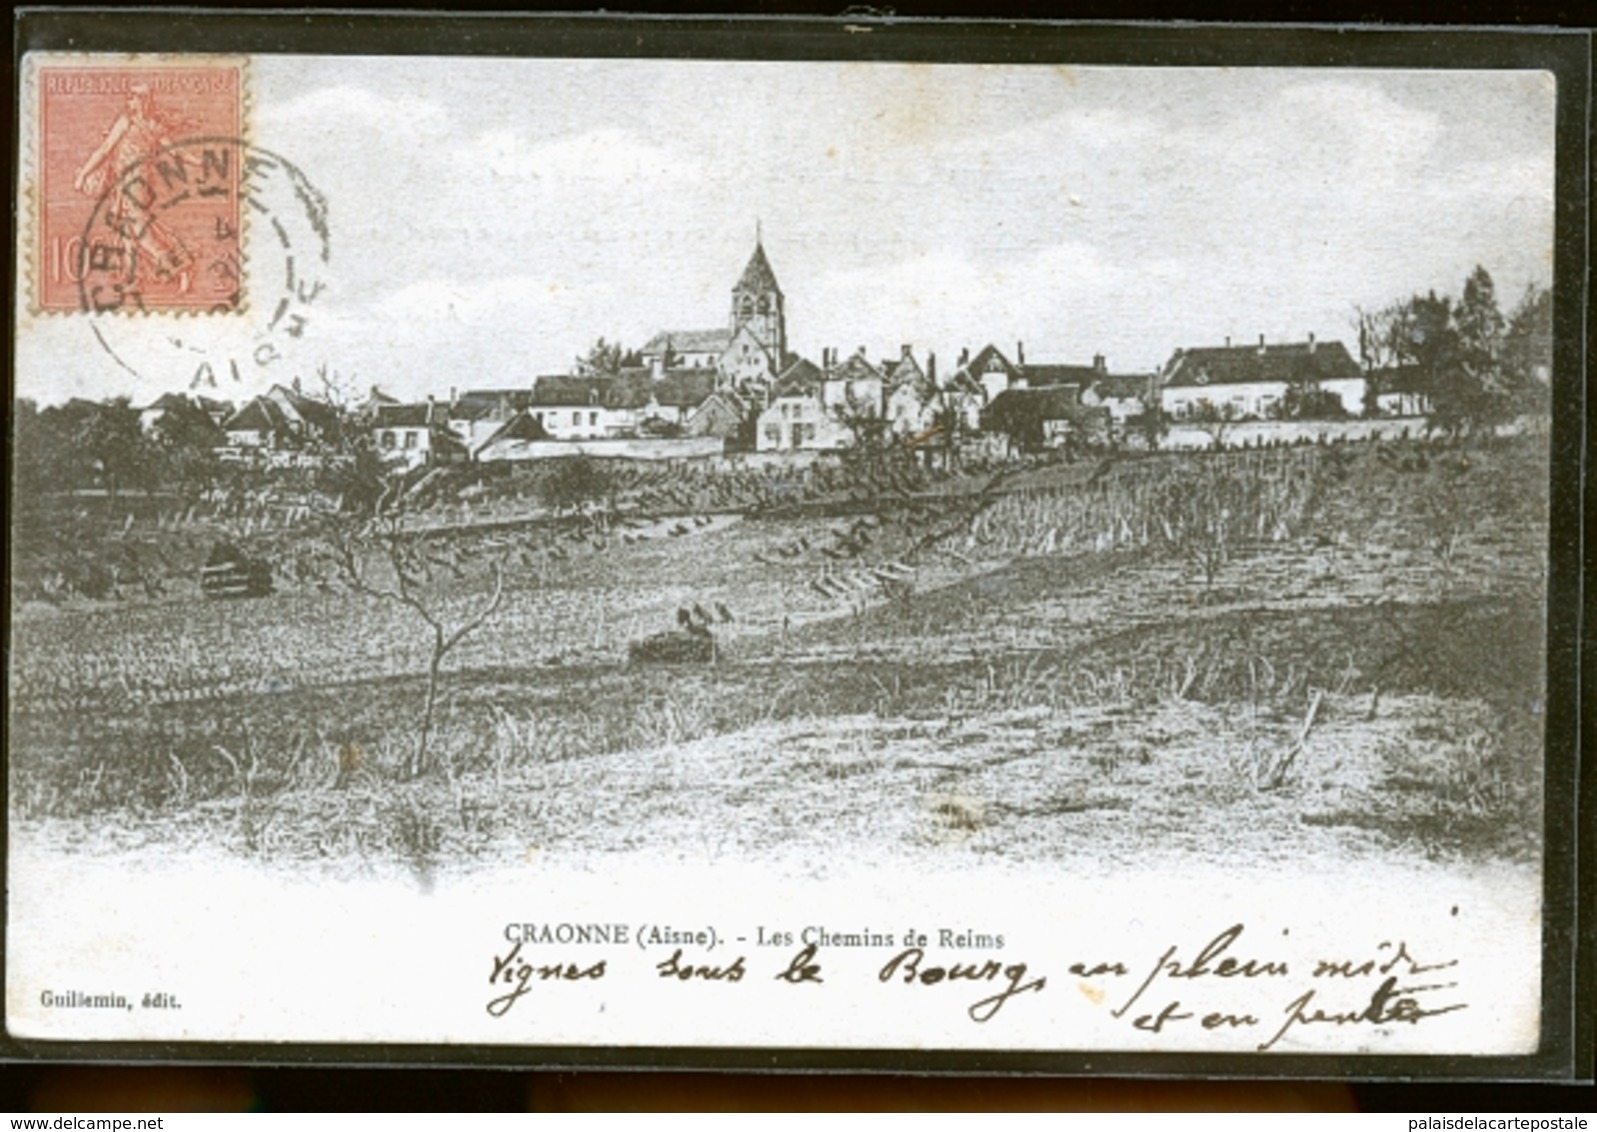 REPUBLIQUE FRANÇAISE
10
CRAONNE
4
AISNE
CRAONNE (Aisne). - Les Chemins de Reims
Vignes sous le Bourg, en plein midi
et en pente
Guillemin, édit.
palaisdelacartepostale